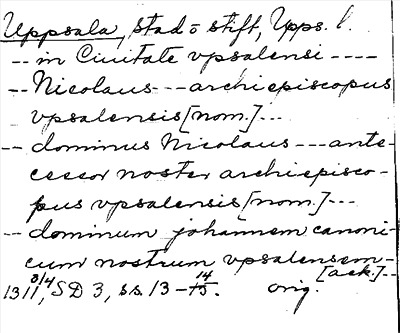 Uppsala, stad o stift, Upps. l.
-- in Ciuitate vpsalensi ----
-- Nicolaus --- archiepiscopus
vpsalensis [nom.] ---
-- dominus Nicolaus --- ante-
cessor noster archiepisco-
pus vpsalensis [nom.] ---
-- dominum johannem canoni-
cum nostrum vpsalensem-
[ack.] --
1311 3/4, SD 3, ss. 13-14. orig.